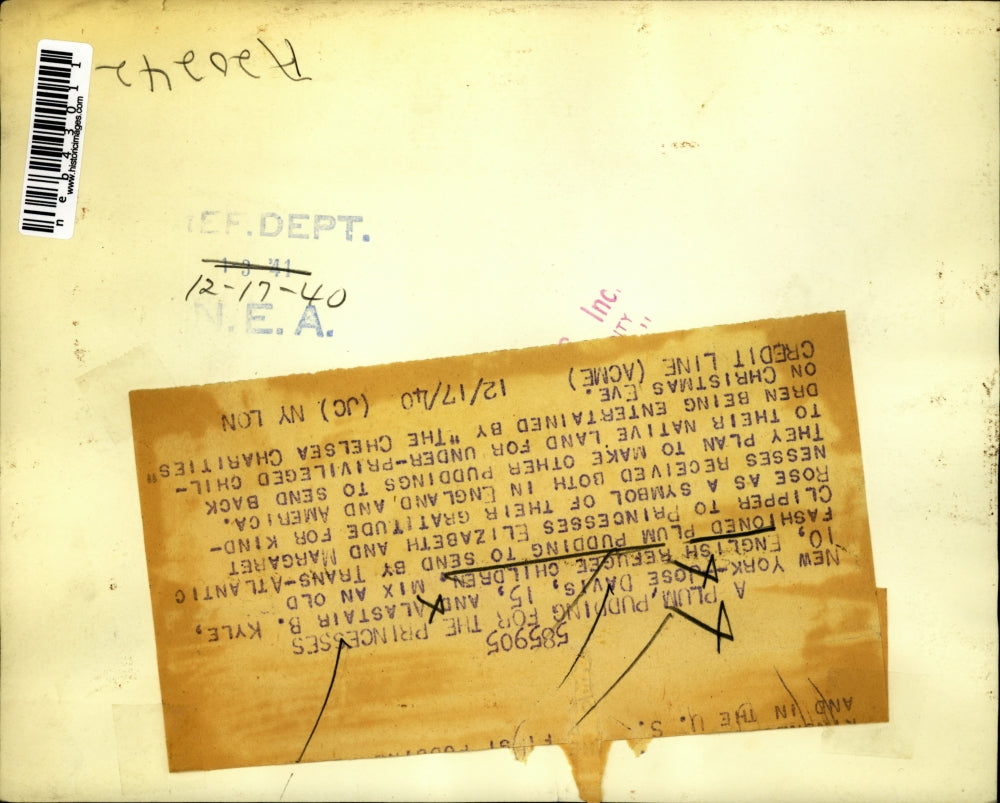 A20242
n e b 4 3 0 1 1
www.historicimages.com
EF. DEPT.
1 3 '41
12-17-40
N.E.A.
Inc.
585905
A PLUM PUDDING FOR THE PRINCESSES
NEW YORK--JOSE DAVIS, 15, AND ALASTAIR B. KYLE,
10, ENGLISH REFUGEE CHILDREN, MIX AN OLD
FASHIONED PLUM PUDDING TO SEND BY TRANS-ATLANTIC
CLIPPER TO PRINCESSES ELIZABETH AND MARGARET
ROSE AS A SYMBOL OF THEIR GRATITUDE FOR KIND-
NESSES RECEIVED BOTH IN ENGLAND, AND AMERICA.
THEY PLAN TO MAKE OTHER PUDDINGS TO SEND BACK
TO THEIR NATIVE LAND FOR UNDER-PRIVILEGED CHIL-
DREN BEING ENTERTAINED BY "THE CHELSEA CHARITIES"
ON CHRISTMAS EVE.
CREDIT LINE (ACME) 12/17/40 (JC) NY LON
AND IN THE U. S.